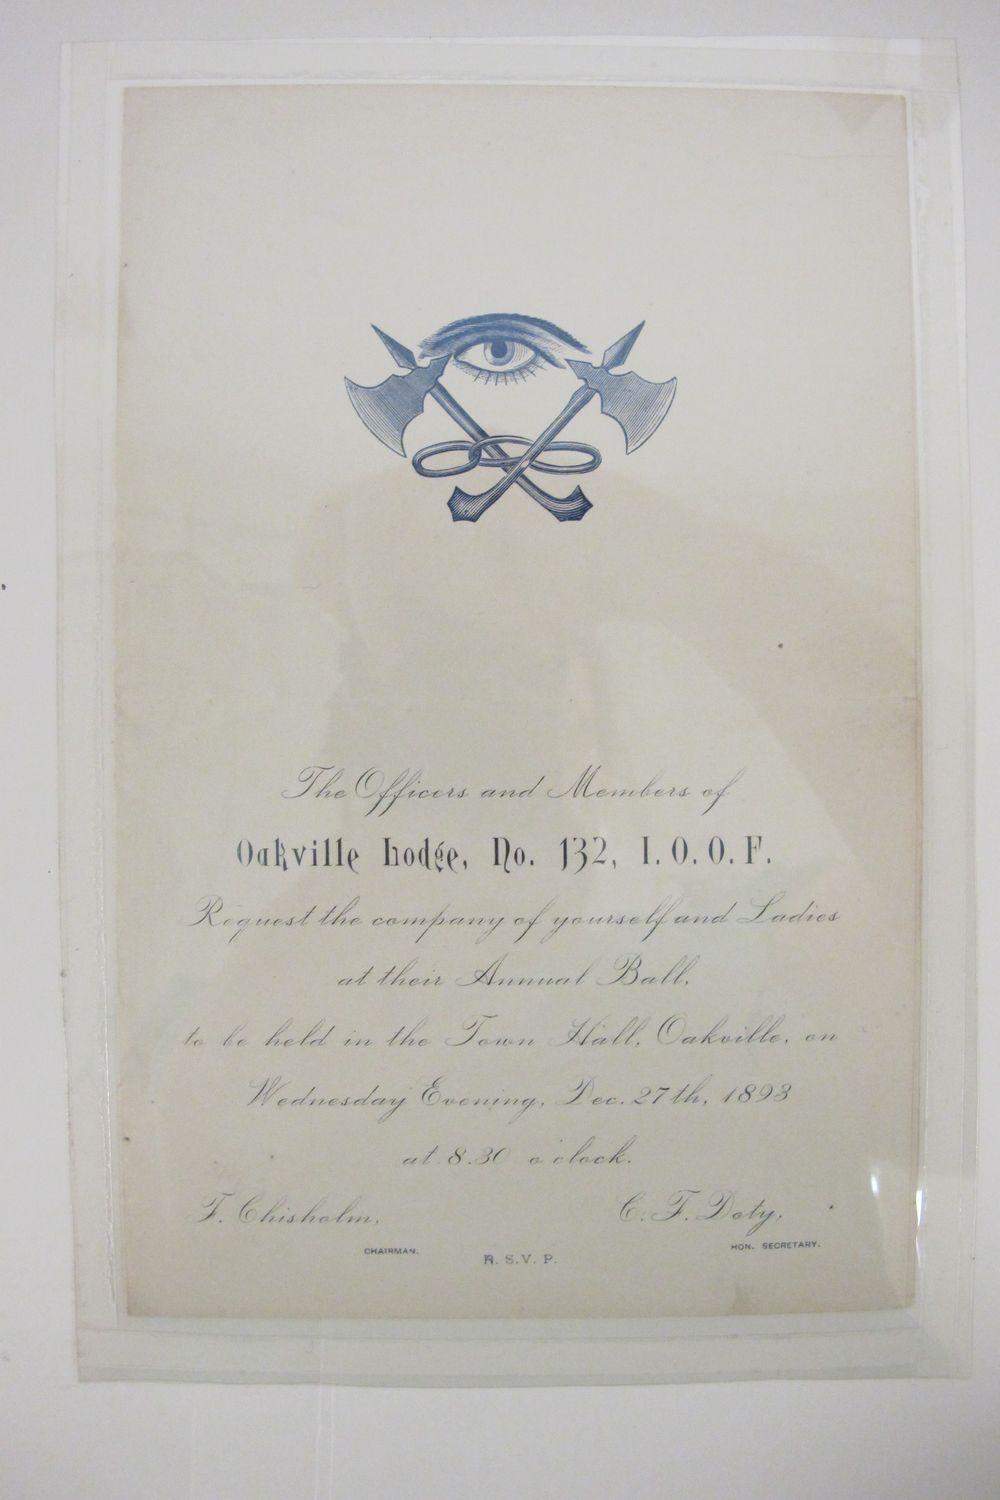 The Officers and Members of
Oakville Lodge, No. 132, I.O.O.F.
Request the company of yourself and Ladies
at their Annual Ball,
to be held in the Town Hall, Oakville, on
Wednesday Evening, Dec. 27th, 1893
at 8.30 o'clock.
F. Chisholm, C. F. Doty,
CHAIRMAN. HON. SECRETARY.
R. S. V. P.